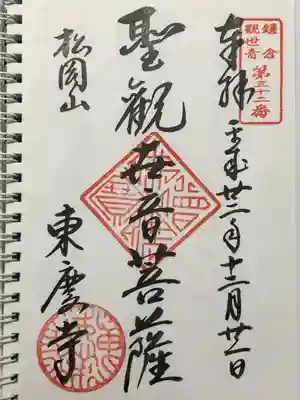 鎌倉
観世音
第三十二番
奉拝 平成廿二年十二月廿一日
聖觀世音菩薩
松岡山
東慶寺